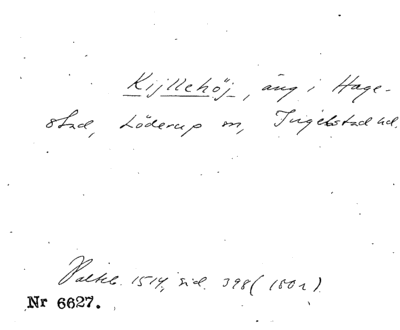 Kijllehöj, äng i Hage-
stad, Löderup sn, Ingelstad hd.
Palteb. 1514, sid. 398 (150r).
Nr 6627.